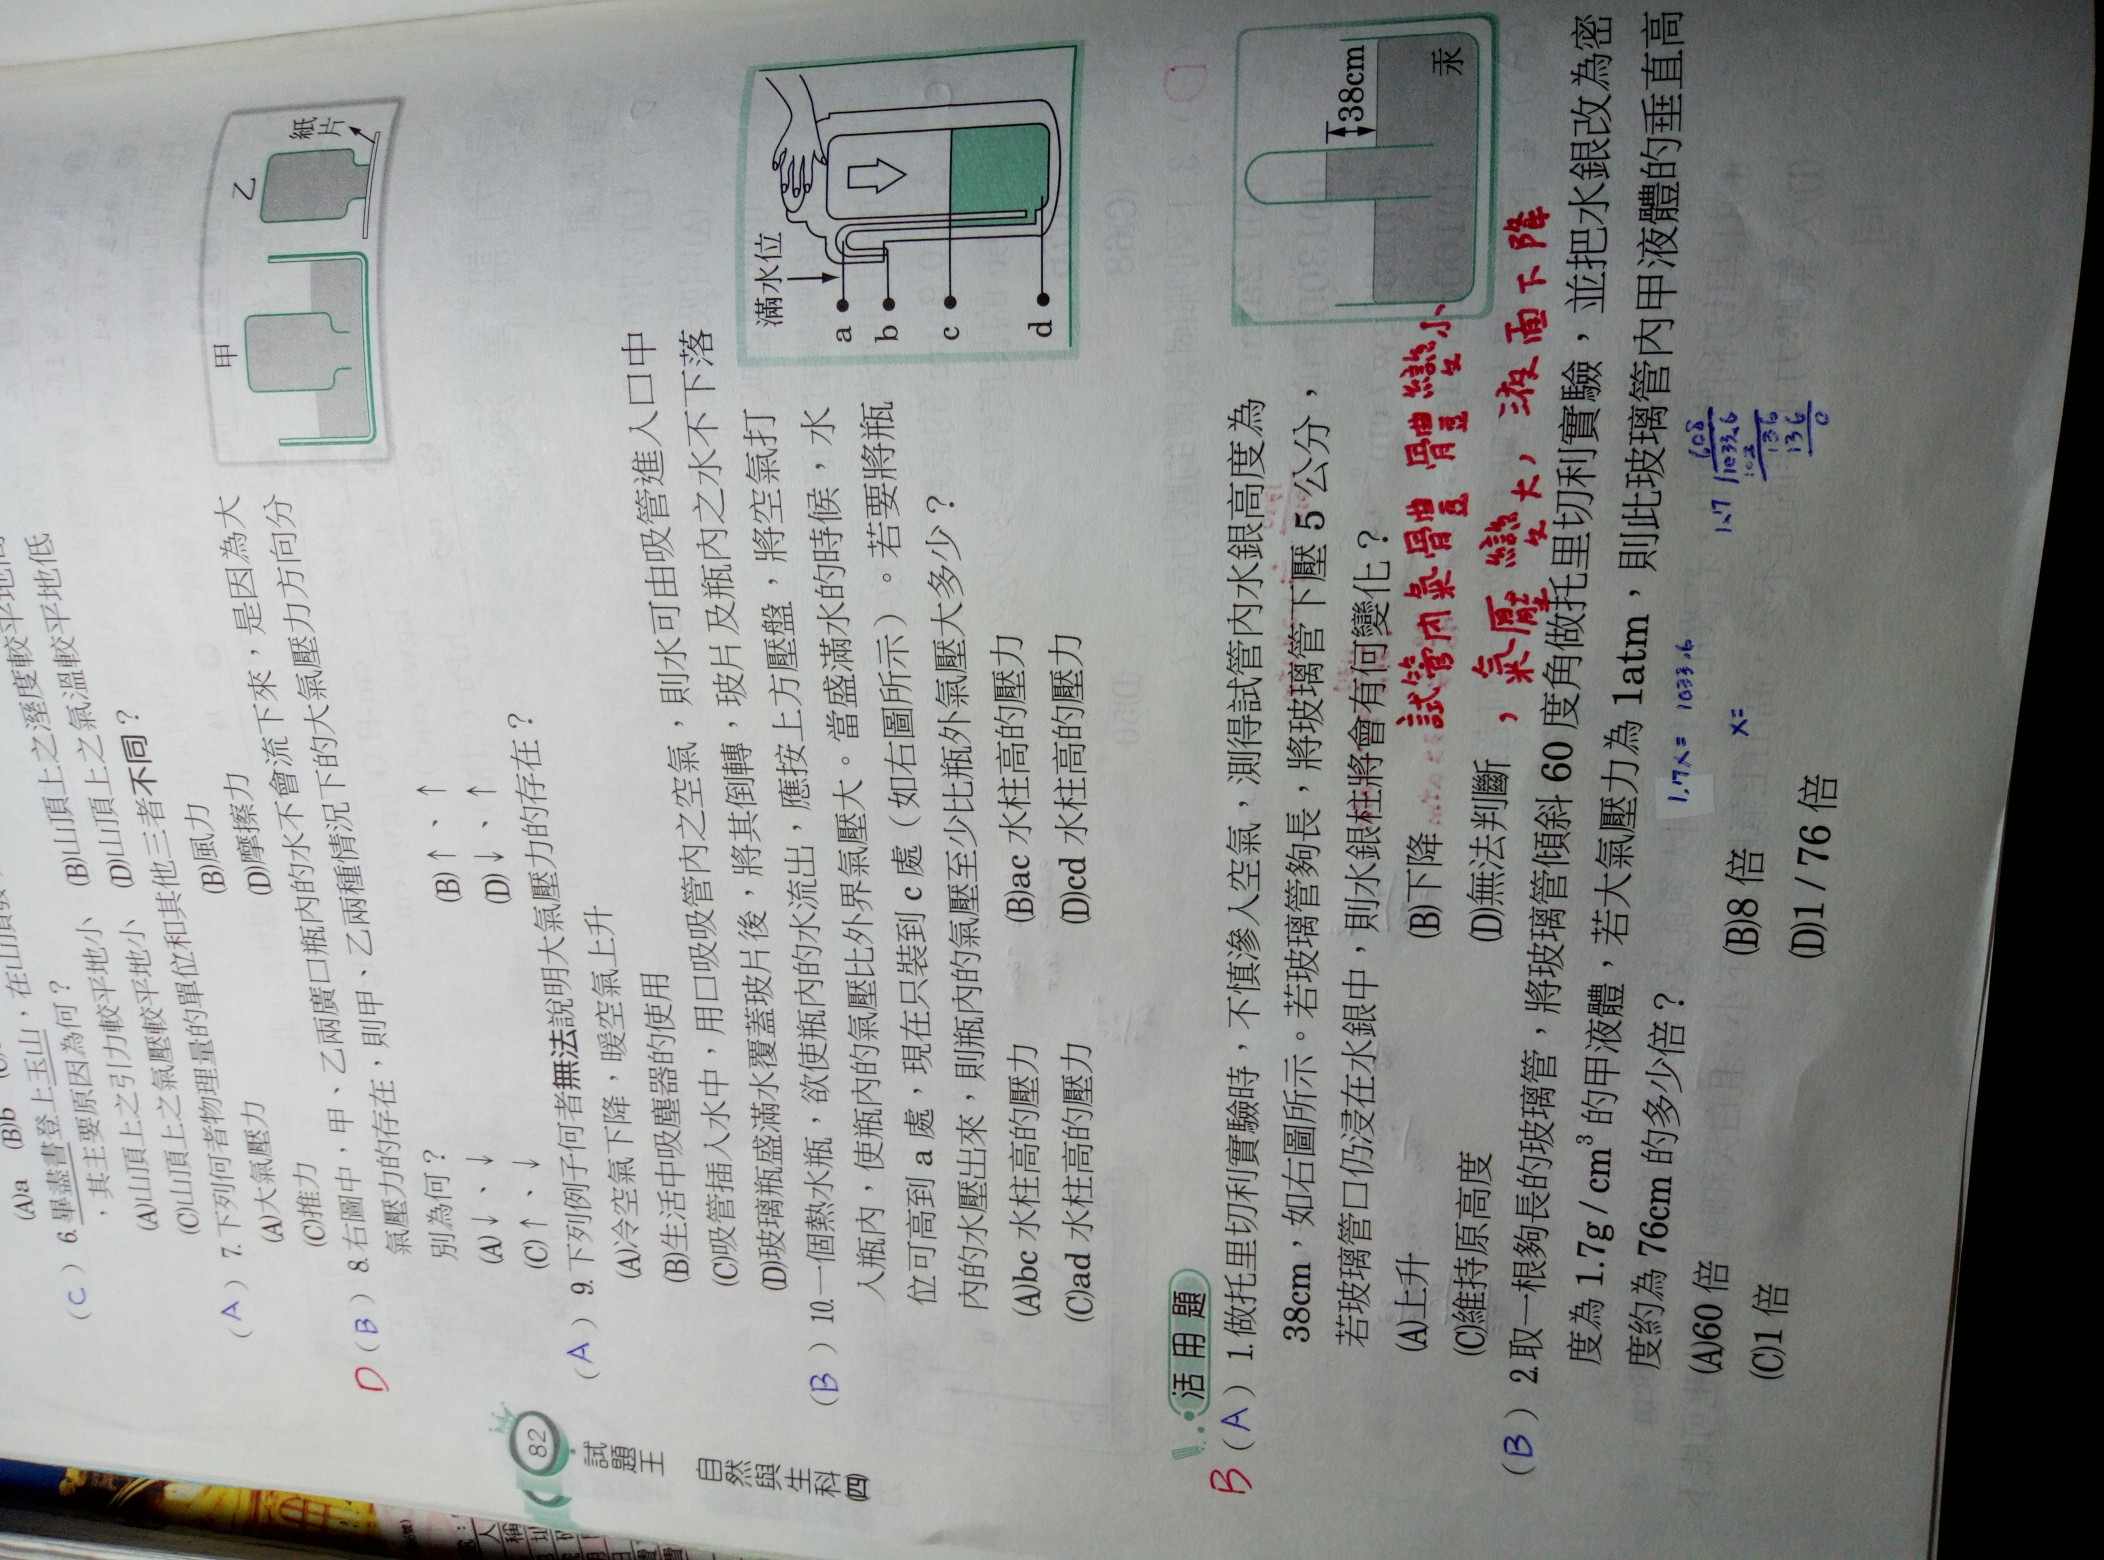 (A)a (B)b
(C) 6.畢盡書登上玉山,在山頂
,其主要原因為何?
(A)山頂上之引力較平地小 (B)山頂上之溼度較平地高
(C)山頂上之氣壓較平地小 (D)山頂上之氣溫較平地低
(A) 7.下列何者物理量的單位和其他三者不同?
(A)大氣壓力 (B)風力
(C)推力 (D)摩擦力
D (B) 8.右圖中,甲、乙兩廣口瓶內的水不會流下來,是因為大
氣壓力的存在,則甲、乙兩種情況下的大氣壓力方向分
別為何?
(A)↓、↓ (B)↑、↑
(C)↑、↓ (D)↓、↑
甲
乙
紙片
(A) 9.下列例子何者無法說明大氣壓力的存在?
(A)冷空氣下降,暖空氣上升
(B)生活中吸塵器的使用
(C)吸管插入水中,用口吸吸管內之空氣,則水可由吸管進入口中
(D)玻璃瓶盛滿水覆蓋玻片後,將其倒轉,玻片及瓶內之水不下落
(B) 10.一個熱水瓶,欲使瓶內的水流出,應按上方壓盤,將空氣打
入瓶內,使瓶內的氣壓比外界氣壓大。當盛滿水的時候,水
位可高到 a 處,現在只裝到 c 處(如右圖所示)。若要將瓶
內的水壓出來,則瓶內的氣壓至少比瓶外氣壓大多少?
(A)bc 水柱高的壓力 (B)ac 水柱高的壓力
(C)ad 水柱高的壓力 (D)cd 水柱高的壓力
滿水位
a
b
c
d
82
試題王
自然與生科(四)
活用題
B (A) 1.做托里切利實驗時,不慎滲入空氣,測得試管內水銀高度為
38cm,如右圖所示。若玻璃管夠長,將玻璃管下壓 5 公分,
若玻璃管口仍浸在水銀中,則水銀柱將會有何變化?
(A)上升 (B)下降
(C)維持原高度 (D)無法判斷
試管內氣體體變小
,氣壓變大,液面下降
38cm
汞
(B) 2.取一根夠長的玻璃管,將玻璃管傾斜 60 度角做托里切利實驗,並把水銀改為密
度為 1.7g / cm³ 的甲液體,若大氣壓力為 1atm,則此玻璃管內甲液體的垂直高
度約為 76cm 的多少倍?
(A)60 倍 (B)8 倍
(C)1 倍 (D)1 / 76 倍
1.7x = 1033.6
x=
608
1.7 1033.6
102
136
136
0